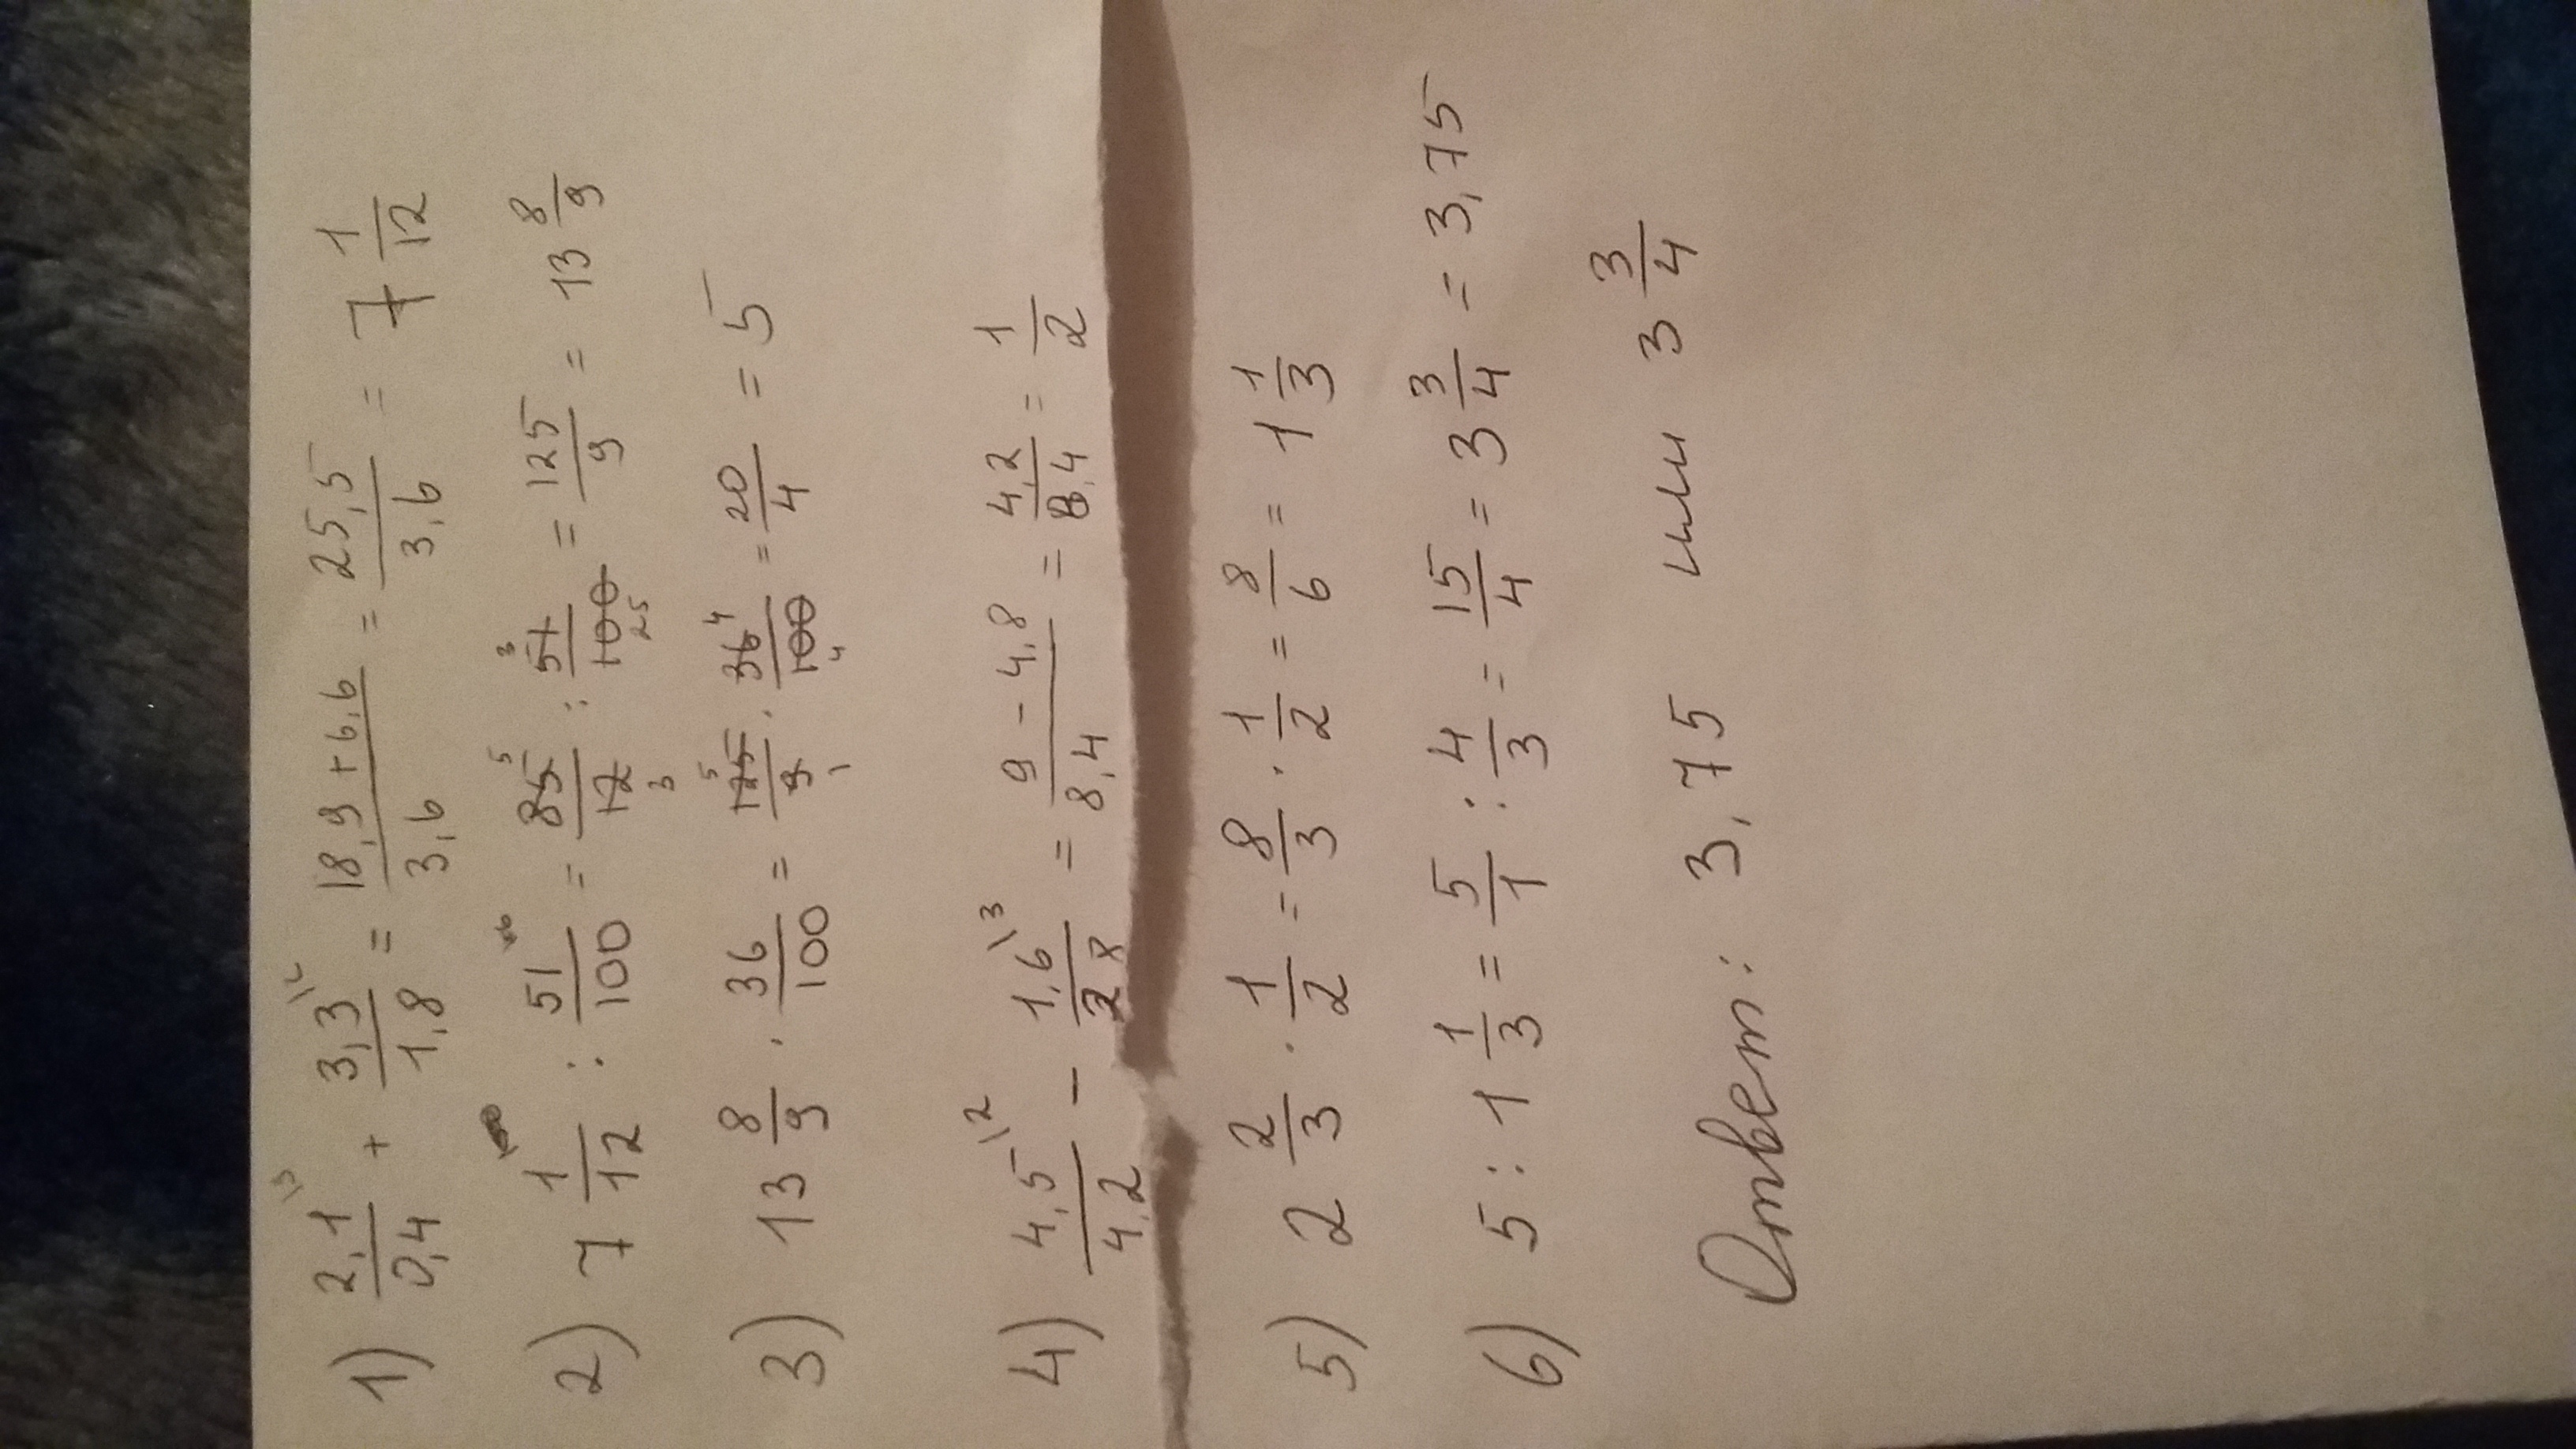 1) 2,1/0,4 \3 + 3,3/1,8 \2 = (18,9 + 6,6)/3,6 = 25,5/3,6 = 7 1/12
2) 7 1/12 : 51/100 = 85/12 : 51/100 = 125/9 = 13 8/9
5 3
3 25
3) 13 8/9 · 36/100 = 125/9 · 36/100 = 20/4 = 5
5 4
1 4
4) 4,5/4,2 \2 - 1,6/2,8 \3 = (9 - 4,8)/8,4 = 4,2/8,4 = 1/2
5) 2 2/3 · 1/2 = 8/3 · 1/2 = 8/6 = 1 1/3
6) 5 : 1 1/3 = 5/1 : 4/3 = 15/4 = 3 3/4 = 3,75
Ответ: 3,75 или 3 3/4